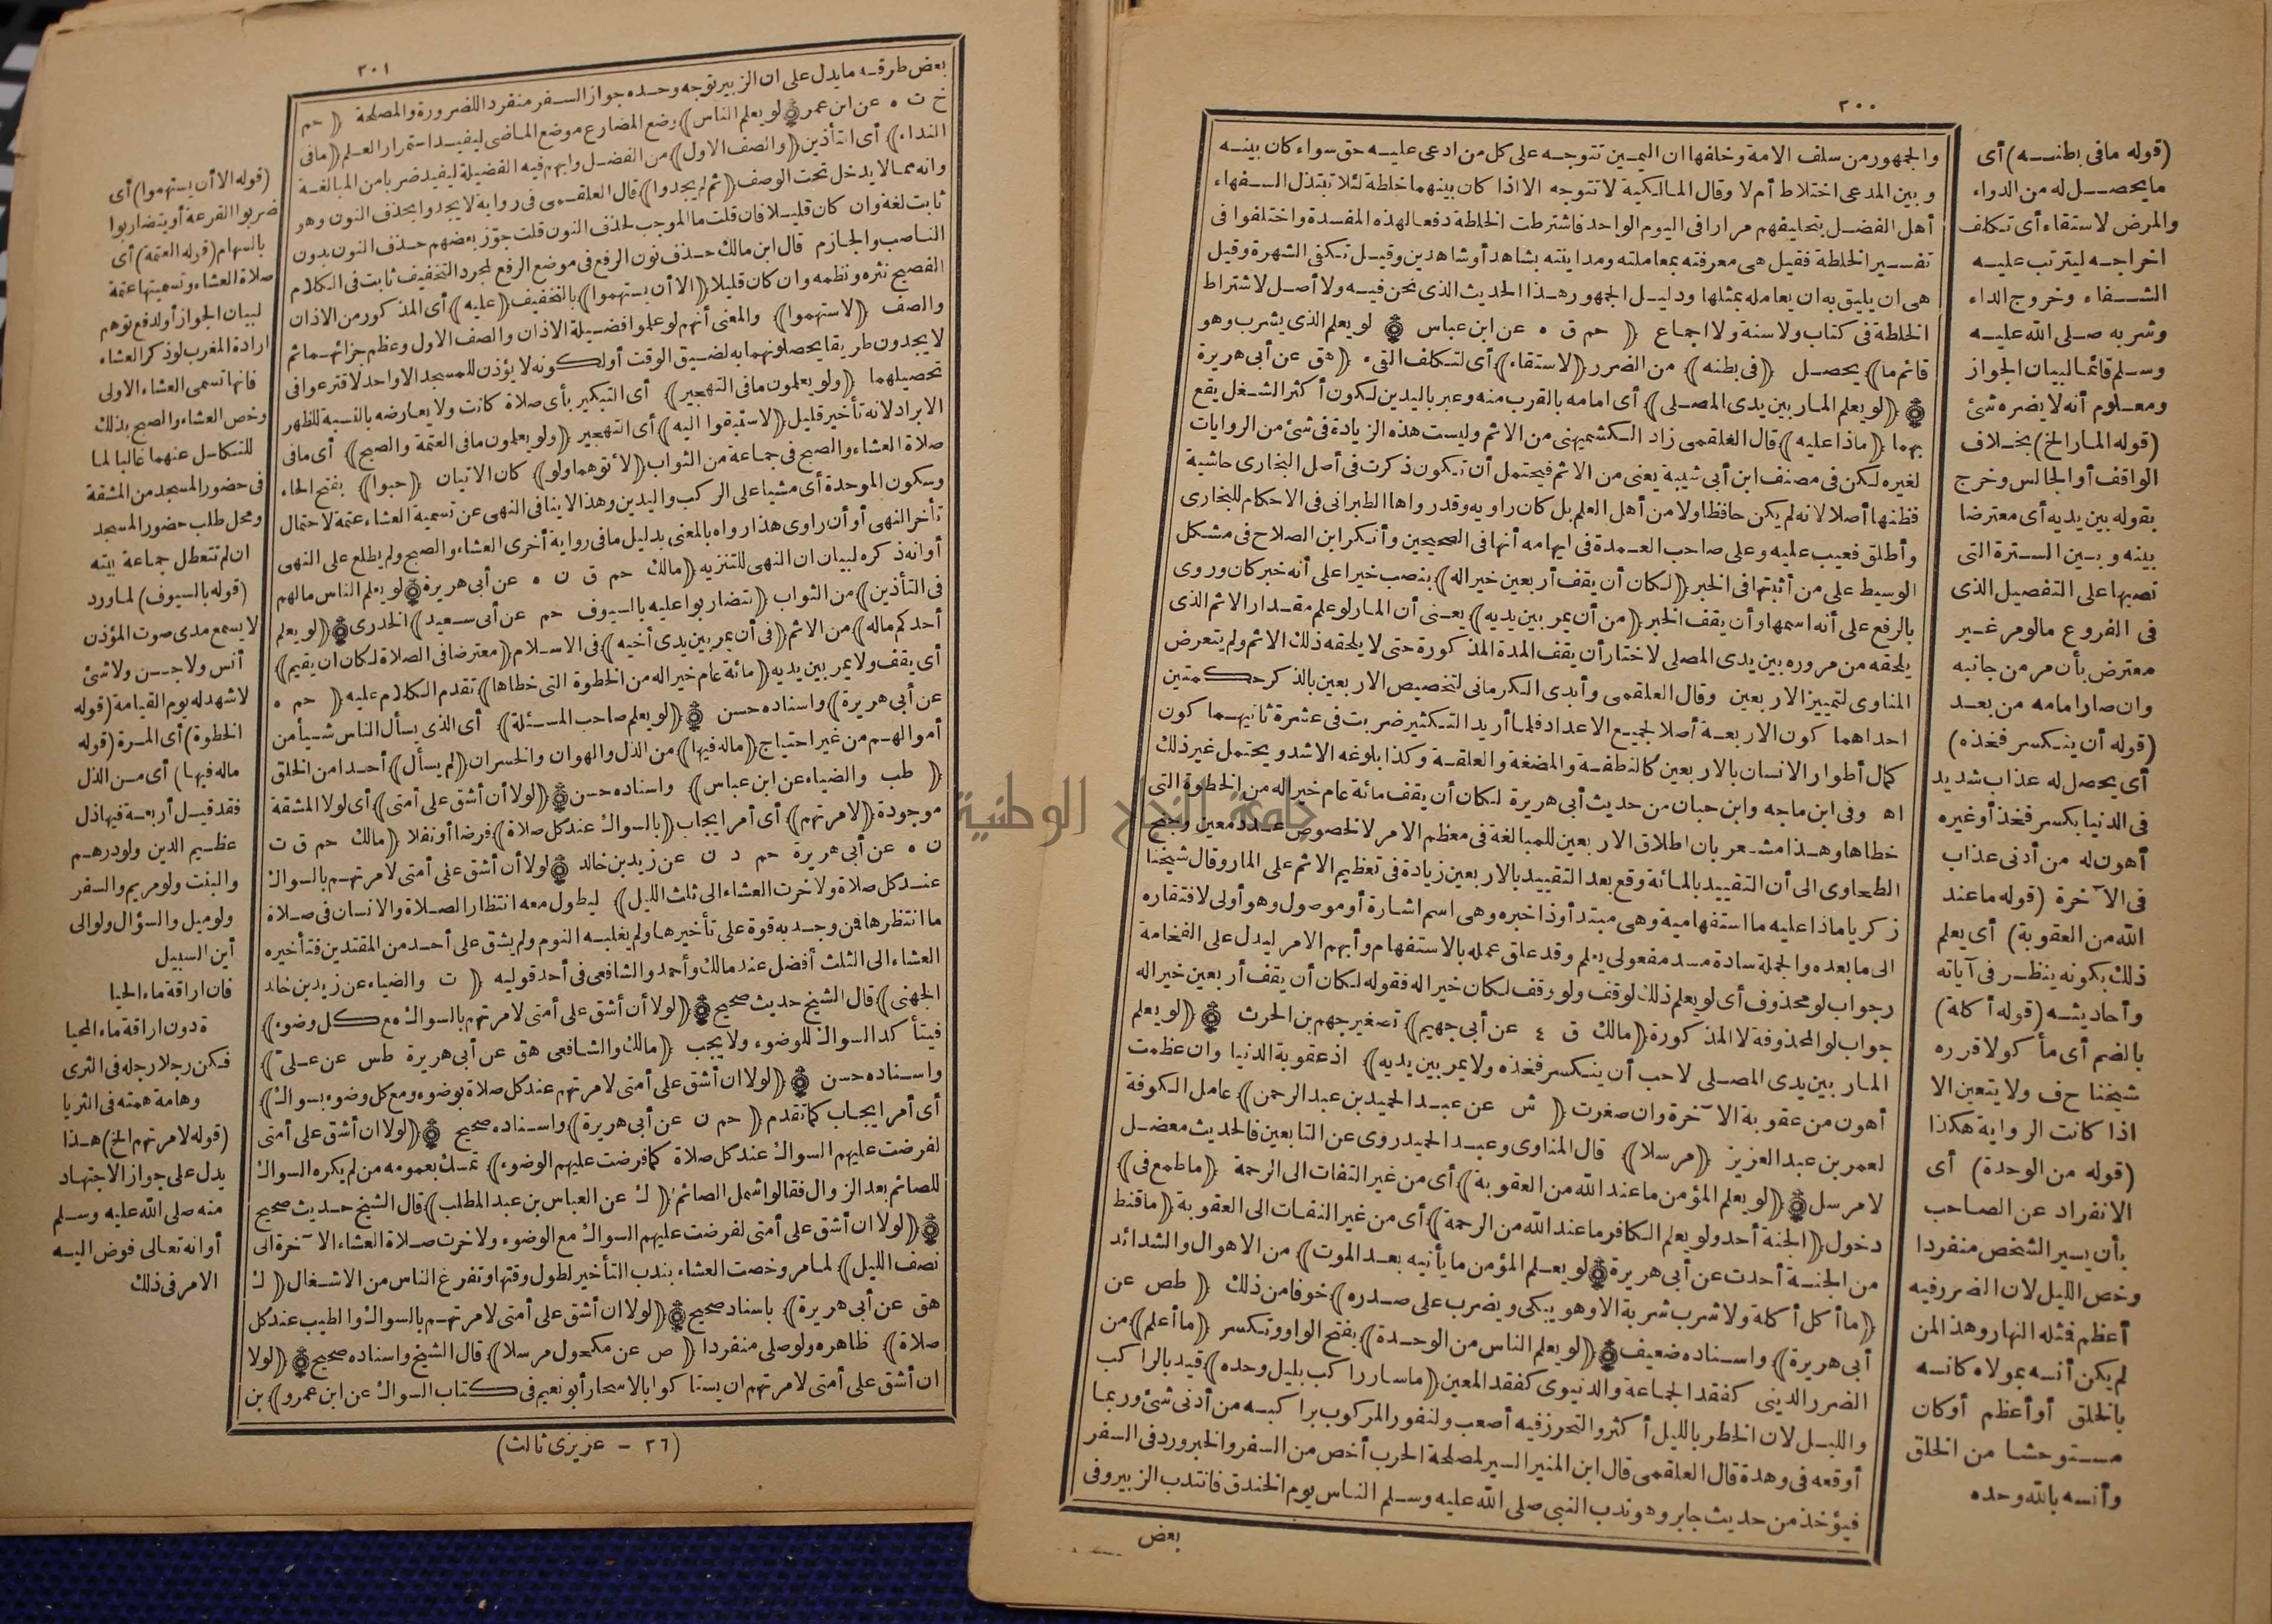 ٢٠٠
والجمهور من سلف الامة وخلفها ان اليمين تتوجه على كل من ادعى عليه حق سواء كان بينه
وبين المدعى اختلاط أم لا وقال المالكية لا تتوجه الا اذا كان بينهما خلطة لئلا تبتذل السفهاء
أهل الفضل بتحليفهم مرارا فى اليوم الواحد فاشترطت الخلطة دفعا لهذه المفسدة واختلفوا فى
تفسير الخلطة فقيل هى معرفته بمعاملته ومداينته بشاهد أو شاهدين وقيل تكفى الشهرة وقيل
هى ان يليق به ان يعامله بمثلها ودليل الجمهور هذا الحديث الذى نحن فيه ولا أصل لاشتراط
الخلطة فى كتاب ولا سنة ولا اجماع ﴿ حم ق ه عن ابن عباس ۞ لو يعلم الذى يشرب وهو
قائم ما﴾ يحصل ﴿فى بطنه﴾ من الضرر ﴿لاستقاء﴾ أى لتكلف القىء ﴿هق عن أبى هريرة
۞ ﴿لو يعلم المار بين يدى المصلى﴾ أى امامه بالقرب منه وعبر باليدين لكون أكثر الشغل يقع
بهما ﴿ماذا عليه﴾ قال العلقمى زاد الكشميهنى من الاثم وليست هذه الزيادة فى شئ من الروايات
لغيره لكن فى مصنف ابن أبى شيبة يعنى من الاثم فيحتمل أن تكون ذكرت فى أصل البخارى حاشية
فظنها أصلا لانه لم يكن حافظا ولا من أهل العلم بل كان راويه وقدرواها الطبرانى فى الاحكام للبخارى
وأطلق فعيب عليه وعلى صاحب العمدة فى ايهامه أنها فى الصحيحين وأنكر ابن الصلاح فى مشكل
الوسيط على من أثبتها فى الخبر ﴿لكان أن يقف أربعين خيرا له﴾ بنصب خيرا على أنه خبر كان وروى
بالرفع على أنه اسمها وأن يقف الخبر ﴿من أن يمر بين يديه﴾ يعنى أن المار لو علم مقدار الاثم الذى
يلحقه من مروره بين يدى المصلى لاختار أن يقف المدة المذكورة حتى لا يلحقه ذلك الاثم ولم يتعرض
المناوى لتمييز الاربعين وقال العلقمى وأبدى الكرمانى لتخصيص الاربعين بالذكر حكمتين
احداهما كون الاربعة أصلا لجميع الاعداد فلما أريد التكثير ضربت فى عشرة ثانيهما كون
كمال أطوار الانسان بالاربعين كالنطفة والمضغة والعلقة وكذا بلوغه الاشد ويحتمل غير ذلك
اه وفى ابن ماجه وابن حبان من حديث أبى هريرة لكان أن يقف مائة عام خير له من الخطوة التى
خطاها وهذا مشعر بان اطلاق الاربعين للمبالغة فى معظم الامر لا لخصوص عدد معين وجنح
الطحاوى الى أن التقييد بالمائة وقع بعد التقييد بالاربعين زيادة فى تعظيم الاثم على المار وقال شيخنا
زكريا ماذا عليه ما استفهامية وهى مبتدأ وذا خبره وهى اسم اشارة أو موصول وهو أولى لافتقاره
الى ما بعده والجملة سادة مسد مفعولى يعلم وقد علق عمله بالاستفهام وأبهم الامر ليدل على الفخامة
وجواب لو محذوف أى لو يعلم ذلك لوقف ولو وقف لكان خيرا له فقوله لكان أن يقف أربعين خيرا له
جواب لو المحذوفة لا المذكورة ﴿مالك ق ٤ عن أبى جهيم﴾ تصغير جهم بن الحرث ۞ ﴿لو يعلم
المار بين يدى المصلى لاحب أن ينكسر فخذه ولا يمر بين يديه﴾ اذ عقوبة الدنيا وان عظمت
أهون من عقوبة الآخرة وان صغرت ﴿ ش عن عبد الحميد بن عبد الرحمن﴾ عامل الكوفة
لعمر بن عبد العزيز ﴿مرسلا﴾ قال المناوى وعبد الحميد روى عن التابعين فالحديث معضل
لا مرسل ۞ ﴿لو يعلم المؤمن ما عند الله من العقوبة﴾ أى من غير التفات الى الرحمة ﴿ما طمع فى﴾
دخول ﴿الجنة أحد ولو يعلم الكافر ما عند الله من الرحمة﴾ أى من غير التفات الى العقوبة ﴿ما قنط
من الجنة أحد ت عن أبى هريرة ۞ لو يعلم المؤمن ما يأتيه بعد الموت﴾ من الاهوال والشدائد
﴿ما أكل أكلة ولا شرب شربة الا وهو يبكى ويضرب على صدره﴾ خوفا من ذلك ﴿ طص عن
أبى هريرة﴾ واسناده ضعيف ۞ ﴿لو يعلم الناس من الوحدة﴾ بفتح الواو وتكسر ﴿ما أعلم﴾ من
الضرر الدينى كفقد الجماعة والدنيوى كفقد المعين ﴿ما سار راكب بليل وحده﴾ قيد بالراكب
والليل لان الخطر بالليل أكثر والتحرز فيه أصعب ولنفور المركوب براكبه من أدنى شئ وربما
أوقعه فى وهدة قال العلقمى قال ابن المنير السير لمصلحة الحرب أخص من السفر والخبر ورد فى السفر
فيؤخذ من حديث جابر وهو ندب النبى صلى الله عليه وسلم الناس يوم الخندق فانتدب الزبير وفى
بعض
(قوله ما فى بطنه) أى
ما يحصل له من الدواء
والمرض لاستقاء أى تكلف
اخراجه ليترتب عليه
الشفاء وخروج الداء
وشربه صلى الله عليه
وسلم قائما لبيان الجواز
ومعلوم أنه لا يضره شئ
(قوله المار الخ) بخلاف
الواقف أو الجالس وخرج
بقوله بين يديه أى معترضا
بينه وبين السترة التى
نصبها على التفصيل الذى
فى الفروع ما لو مر غير
معترض بأن مر من جانبه
وان صار امامه من بعد
(قوله أن ينكسر فخذه)
أى يحصل له عذاب شديد
فى الدنيا بكسر فخذ أو غيره
أهون له من أدنى عذاب
فى الآخرة (قوله ما عند
الله من العقوبة) أى يعلم
ذلك بكونه ينظر فى آياته
وأحاديثه (قوله أكلة)
بالضم أى مأكولا قرره
شيخنا ح ف ولا يتعين الا
اذا كانت الرواية هكذا
(قوله من الوحدة) أى
الانفراد عن الصاحب
بأن يسير الشخص منفردا
وخص الليل لان الضرر فيه
أعظم فمثله النهار وهذا لمن
لم يكن أنسه بمولاه كانسه
بالخلق أو أعظم أو كان
مستوحشا من الخلق
وأنسه بالله وحده
٢٠١
بعض طرقه ما يدل على ان الزبير توجه وحده جواز السفر منفردا للضرورة والمصلحة ﴿ حم
خ ت ه عن ابن عمر ۞ لو يعلم الناس﴾ وضع المضارع موضع الماضى ليفيد استمرار العلم ﴿ما فى
النداء﴾ أى التأذين ﴿والصف الاول﴾ من الفضل وابهم فيه الفضيلة ليفيد ضربا من المبالغة
وانه مما لا يدخل تحت الوصف ﴿ثم لم يجدوا﴾ قال العلقمى فى رواية لا يجدوا بحذف النون وهو
ثابت لغة وان كان قليلا فان قلت ما الموجب لحذف النون قلت جوز بعضهم حذف النون بدون
الناصب والجازم قال ابن مالك حذف نون الرفع فى موضع الرفع لمجرد التخفيف ثابت فى الكلام
الفصيح نثره ونظمه وان كان قليلا ﴿الا أن يستهموا﴾ بالتخفيف ﴿عليه﴾ أى المذكور من الاذان
والصف ﴿لاستهموا﴾ والمعنى أنهم لو علموا فضيلة الاذان والصف الاول وعظم جزائهما ثم
لا يجدون طريقا يحصلونهما به لضيق الوقت أو لكونه لا يؤذن للمسجد الا واحد لاقترعوا فى
تحصيلهما ﴿ولو يعلمون ما فى التهجير﴾ أى التبكير بأى صلاة كانت ولا يعارضه بالنسبة للظهر
الابراد لانه تأخير قليل ﴿لاستبقوا اليه﴾ أى التهجير ﴿ولو يعلمون ما فى العتمة والصبح﴾ أى ما فى
صلاة العشاء والصبح فى جماعة من الثواب ﴿لأتوهما ولو﴾ كان الاتيان ﴿حبوا﴾ بفتح الحاء
وسكون الموحدة أى مشيا على الركب واليدين وهذا لا ينافى النهى عن تسمية العشاء عتمة لاحتمال
تأخر النهى أو أن راوى هذا رواه بالمعنى بدليل ما فى رواية أخرى العشاء والصبح ولم يطلع على النهى
أو انه ذكره لبيان ان النهى للتنزيه ﴿مالك حم ق ن ه عن أبى هريرة ۞ لو يعلم الناس ما لهم
فى التأذين﴾ من الثواب ﴿لتضاربوا عليه بالسيوف حم عن أبى سعيد﴾ الخدرى ۞ ﴿لو يعلم
أحدكم ماله﴾ من الاثم ﴿فى أن يمر بين يدى أخيه﴾ فى الاسلام ﴿معترضا فى الصلاة لكان ان يقيم﴾
أى يقف ولا يمر بين يديه ﴿مائة عام خير له من الخطوة التى خطاها﴾ تقدم الكلام عليه ﴿ حم ه
عن أبى هريرة﴾ واسناده حسن ۞ ﴿لو يعلم صاحب المسئلة﴾ أى الذى يسأل الناس شيأ من
أموالهم من غير احتياج ﴿ماله فيها﴾ من الذل والهوان والخسران ﴿لم يسأل﴾ أحدا من الخلق
﴿ طب والضياء عن ابن عباس﴾ واسناده حسن ۞ ﴿لولا أن أشق على أمتى﴾ أى لولا المشقة
موجودة ﴿لامرتهم﴾ أى أمر ايجاب ﴿بالسواك عند كل صلاة﴾ فرضا أو نفلا ﴿مالك حم ق ت
ن ه عن أبى هريرة حم د ن عن زيد بن خالد ۞ لولا أن أشق على أمتى لامرتهم بالسواك
عند كل صلاة ولاخرت العشاء الى ثلث الليل﴾ ليطول معه انتظار الصلاة والانسان فى صلاة
ما انتظرها فمن وجد به قوة على تأخيرها ولم يغلبه النوم ولم يشق على أحد من المقتدين فتأخيره
العشاء الى الثلث أفضل عند مالك وأحمد والشافعى فى أحد قوليه ﴿ ت والضياء عن زيد بن خالد
الجهنى﴾ قال الشيخ حديث صحيح ۞ ﴿لولا أن أشق على أمتى لامرتهم بالسواك مع كل وضوء﴾
فيتأكد السواك للوضوء ولا يجب ﴿مالك والشافعى هق عن أبى هريرة طس عن على﴾
واسناده حسن ۞ ﴿لولا ان أشق على أمتى لامرتهم عند كل صلاة بوضوء ومع كل وضوء بسواك﴾
أى أمر ايجاب كما تقدم ﴿ حم ن عن أبى هريرة﴾ واسناده صحيح ۞ ﴿لولا ان أشق على أمتى
لفرضت عليهم السواك عند كل صلاة كما فرضت عليهم الوضوء﴾ تمسك بعمومه من لم يكره السواك
للصائم بعد الزوال فقالوا شمل الصائم ﴿ ك عن العباس بن عبد المطلب﴾ قال الشيخ حديث صحيح
۞ ﴿لولا ان أشق على أمتى لفرضت عليهم السواك مع الوضوء ولاخرت صلاة العشاء الآخرة الى
نصف الليل﴾ لما مر وخصت العشاء بندب التأخير لطول وقتها وتفرغ الناس من الاشغال ﴿ ك
هق عن أبى هريرة﴾ باسناد صحيح ۞ ﴿لولا ان أشق على أمتى لامرتهم بالسواك والطيب عند كل
صلاة﴾ ظاهره ولو صلى منفردا ﴿ ص عن مكحول مرسلا﴾ قال الشيخ واسناده صحيح ۞ ﴿لولا
ان أشق على أمتى لامرتهم ان يستاكوا بالاسحار أبو نعيم فى كتاب السواك عن ابن عمرو﴾ بن
(٢٦ - عزيزى ثالث)
(قوله الا أن يستهموا) أى
ضربوا القرعة أو يتضاربوا
بالسهام (قوله العتمة) أى
صلاة العشاء وتسميتها عتمة
لبيان الجواز أو لدفع توهم
ارادة المغرب لو ذكر العشاء
فانها تسمى العشاء الاولى
وخص العشاء والصبح بذلك
للتكاسل عنهما غالبا لما
فى حضور المسجد من المشقة
ومحل طلب حضور المسجد
ان لم تتعطل جماعة بيته
(قوله بالسيوف) لما ورد
لا يسمع مدى صوت المؤذن
أنس ولا جن ولا شئ
لا شهد له يوم القيامة (قوله
الخطوة) أى المرة (قوله
ماله فيها) أى من الذل
فقد قيل أربعة فيها ذل
عظيم الدين ولو درهم
والبنت ولو مريم والسفر
ولو ميل والسؤال ولو الى
أين السبيل
فان اراقة ماء الحيا
ة دون اراقة ماء المحيا
فكن رجلا رجله فى الثرى
وهامة همته فى الثريا
(قوله لامرتهم الخ) هذا
يدل على جواز الاجتهاد
منه صلى الله عليه وسلم
أو انه تعالى فوض اليه
الامر فى ذلك
جامعة النجاح الوطنية